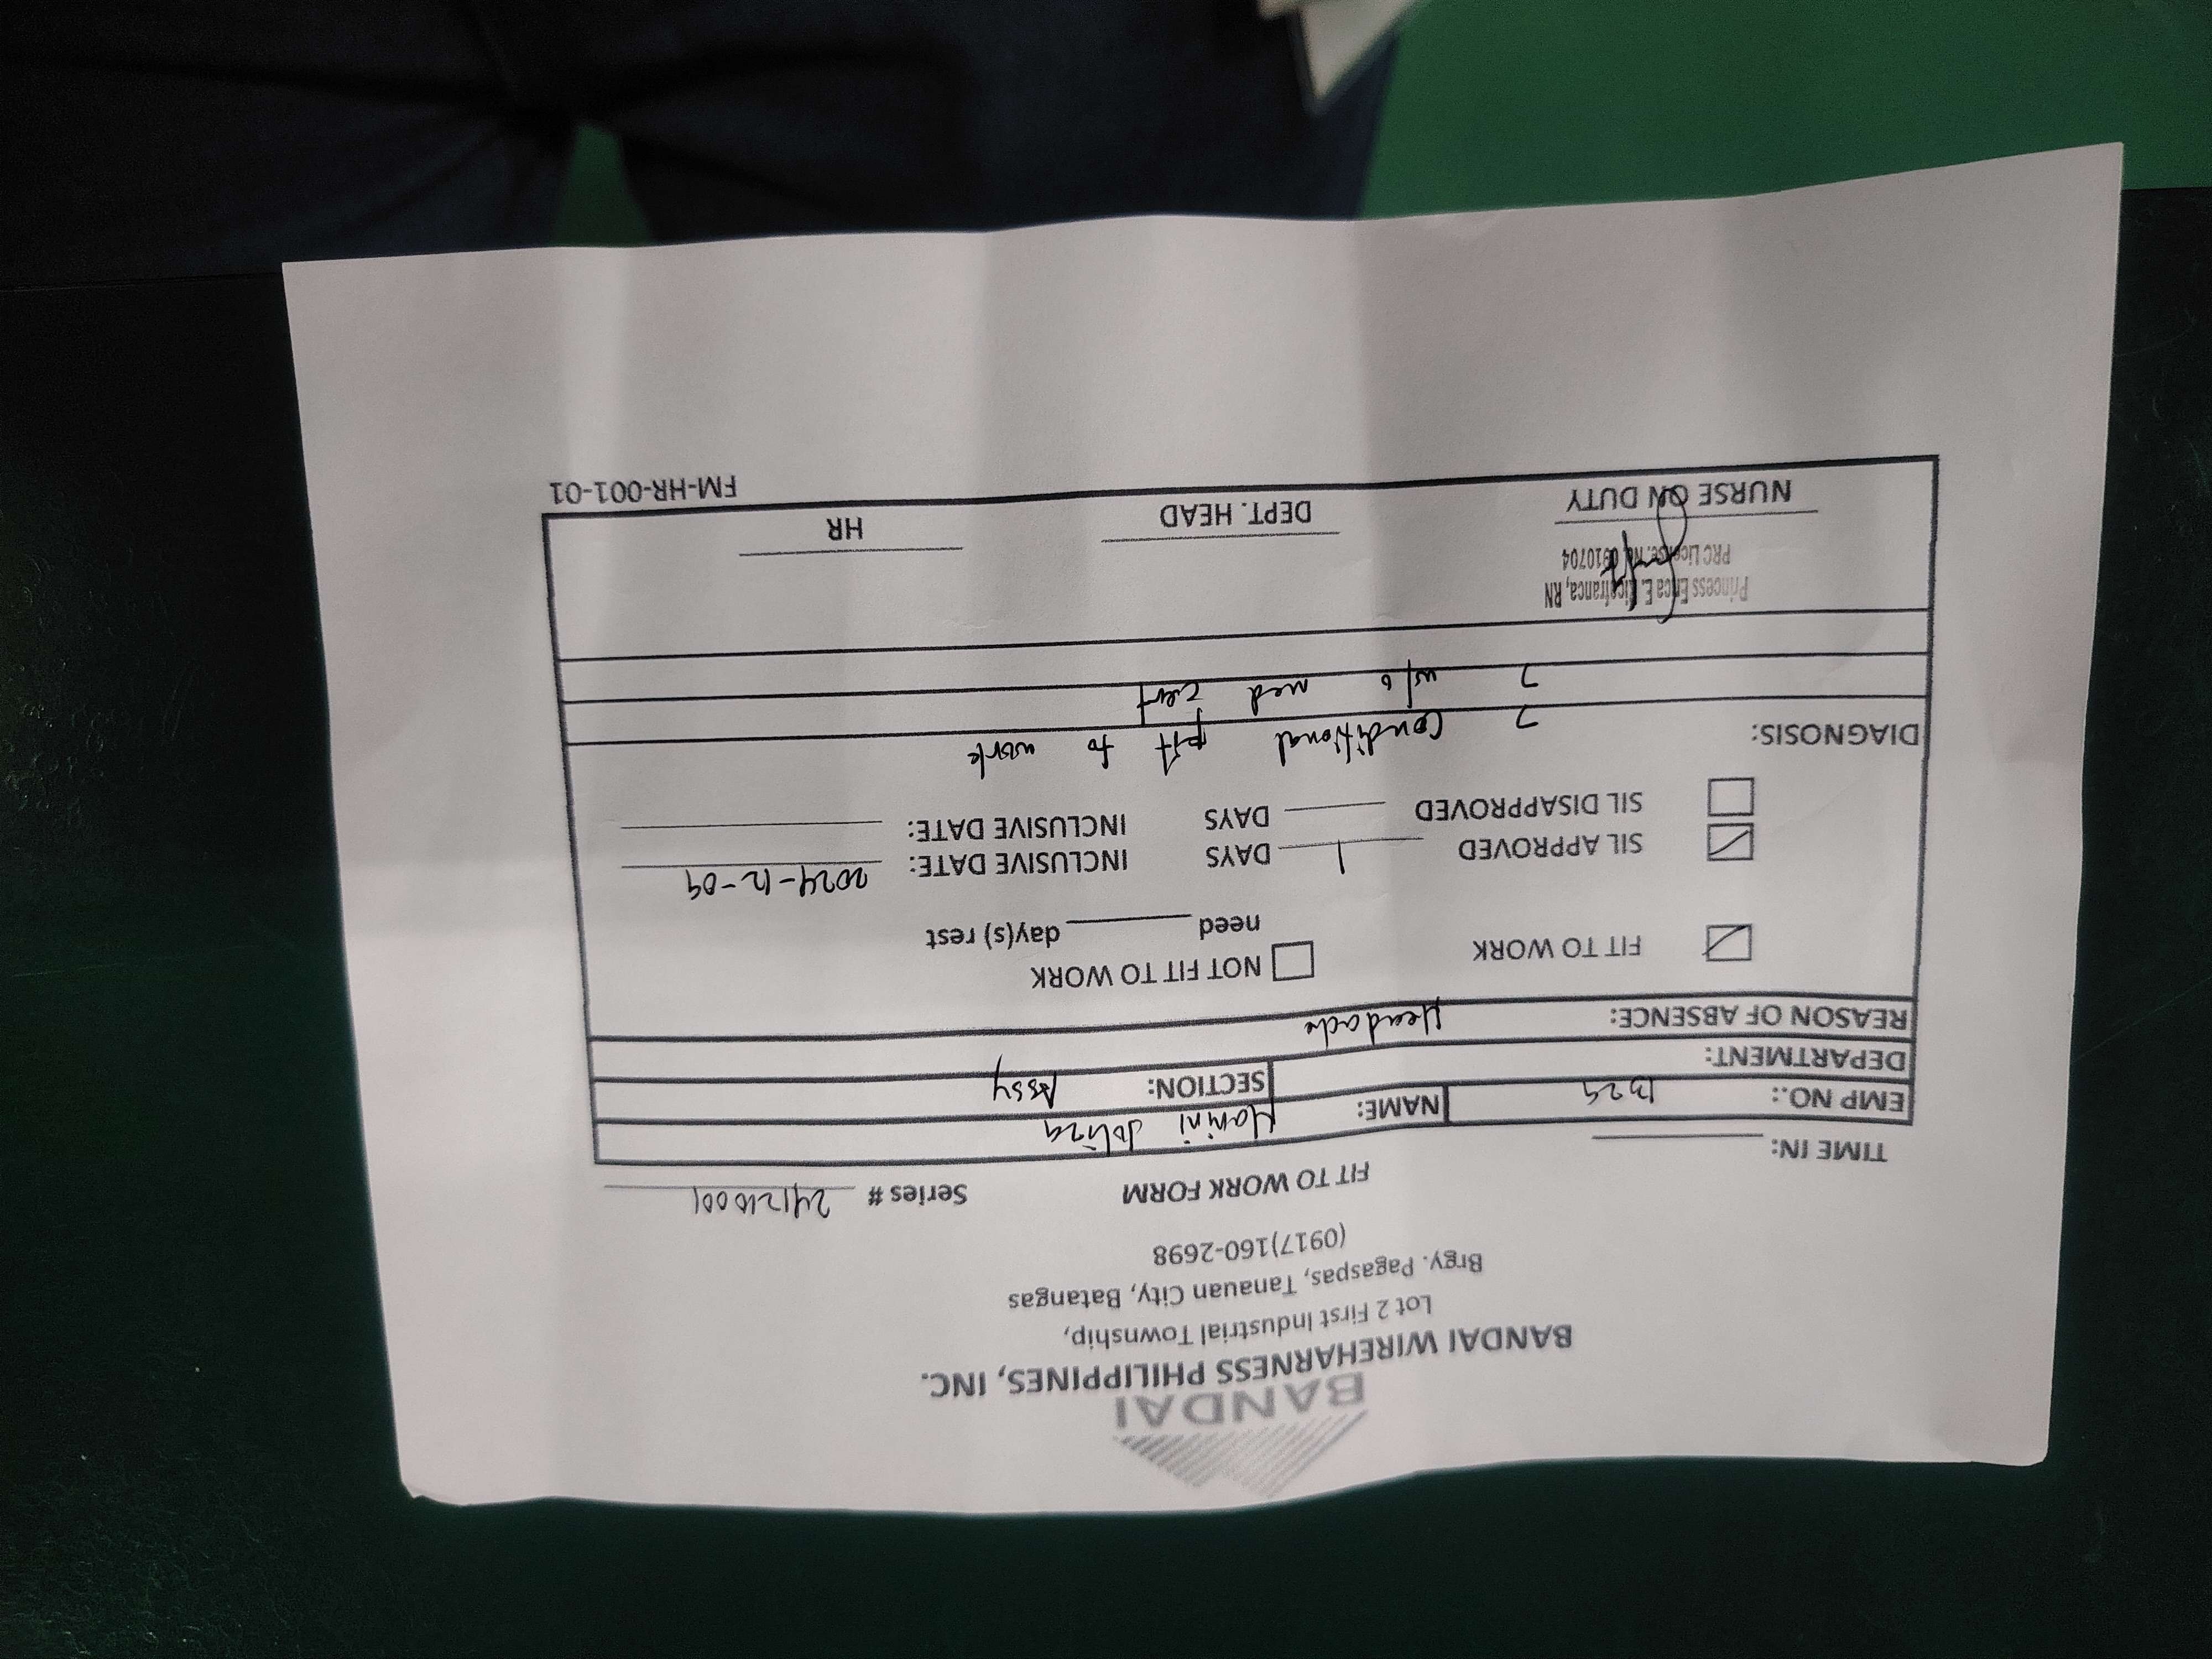 BANDAI
BANDAI WIREHARNESS PHILIPPINES, INC.
Lot 2 First Industrial Township,
Brgy. Pagaspas, Tanauan City, Batangas
(0917)160-2698
FIT TO WORK FORM Series # 241210001
TIME IN:
EMP NO.: 1329 NAME: Hanini Joliza
DEPARTMENT: SECTION: Assy
REASON OF ABSENCE: Headache
FIT TO WORK NOT FIT TO WORK
need day(s) rest
SIL APPROVED 1 DAYS INCLUSIVE DATE: 2024-12-09
SIL DISAPPROVED DAYS INCLUSIVE DATE:
DIAGNOSIS: > Conditional fit to work
> w/o med cert
Princess Erica E. RN
PRC License. No. 0910704
NURSE ON DUTY DEPT. HEAD HR
FM-HR-001-01